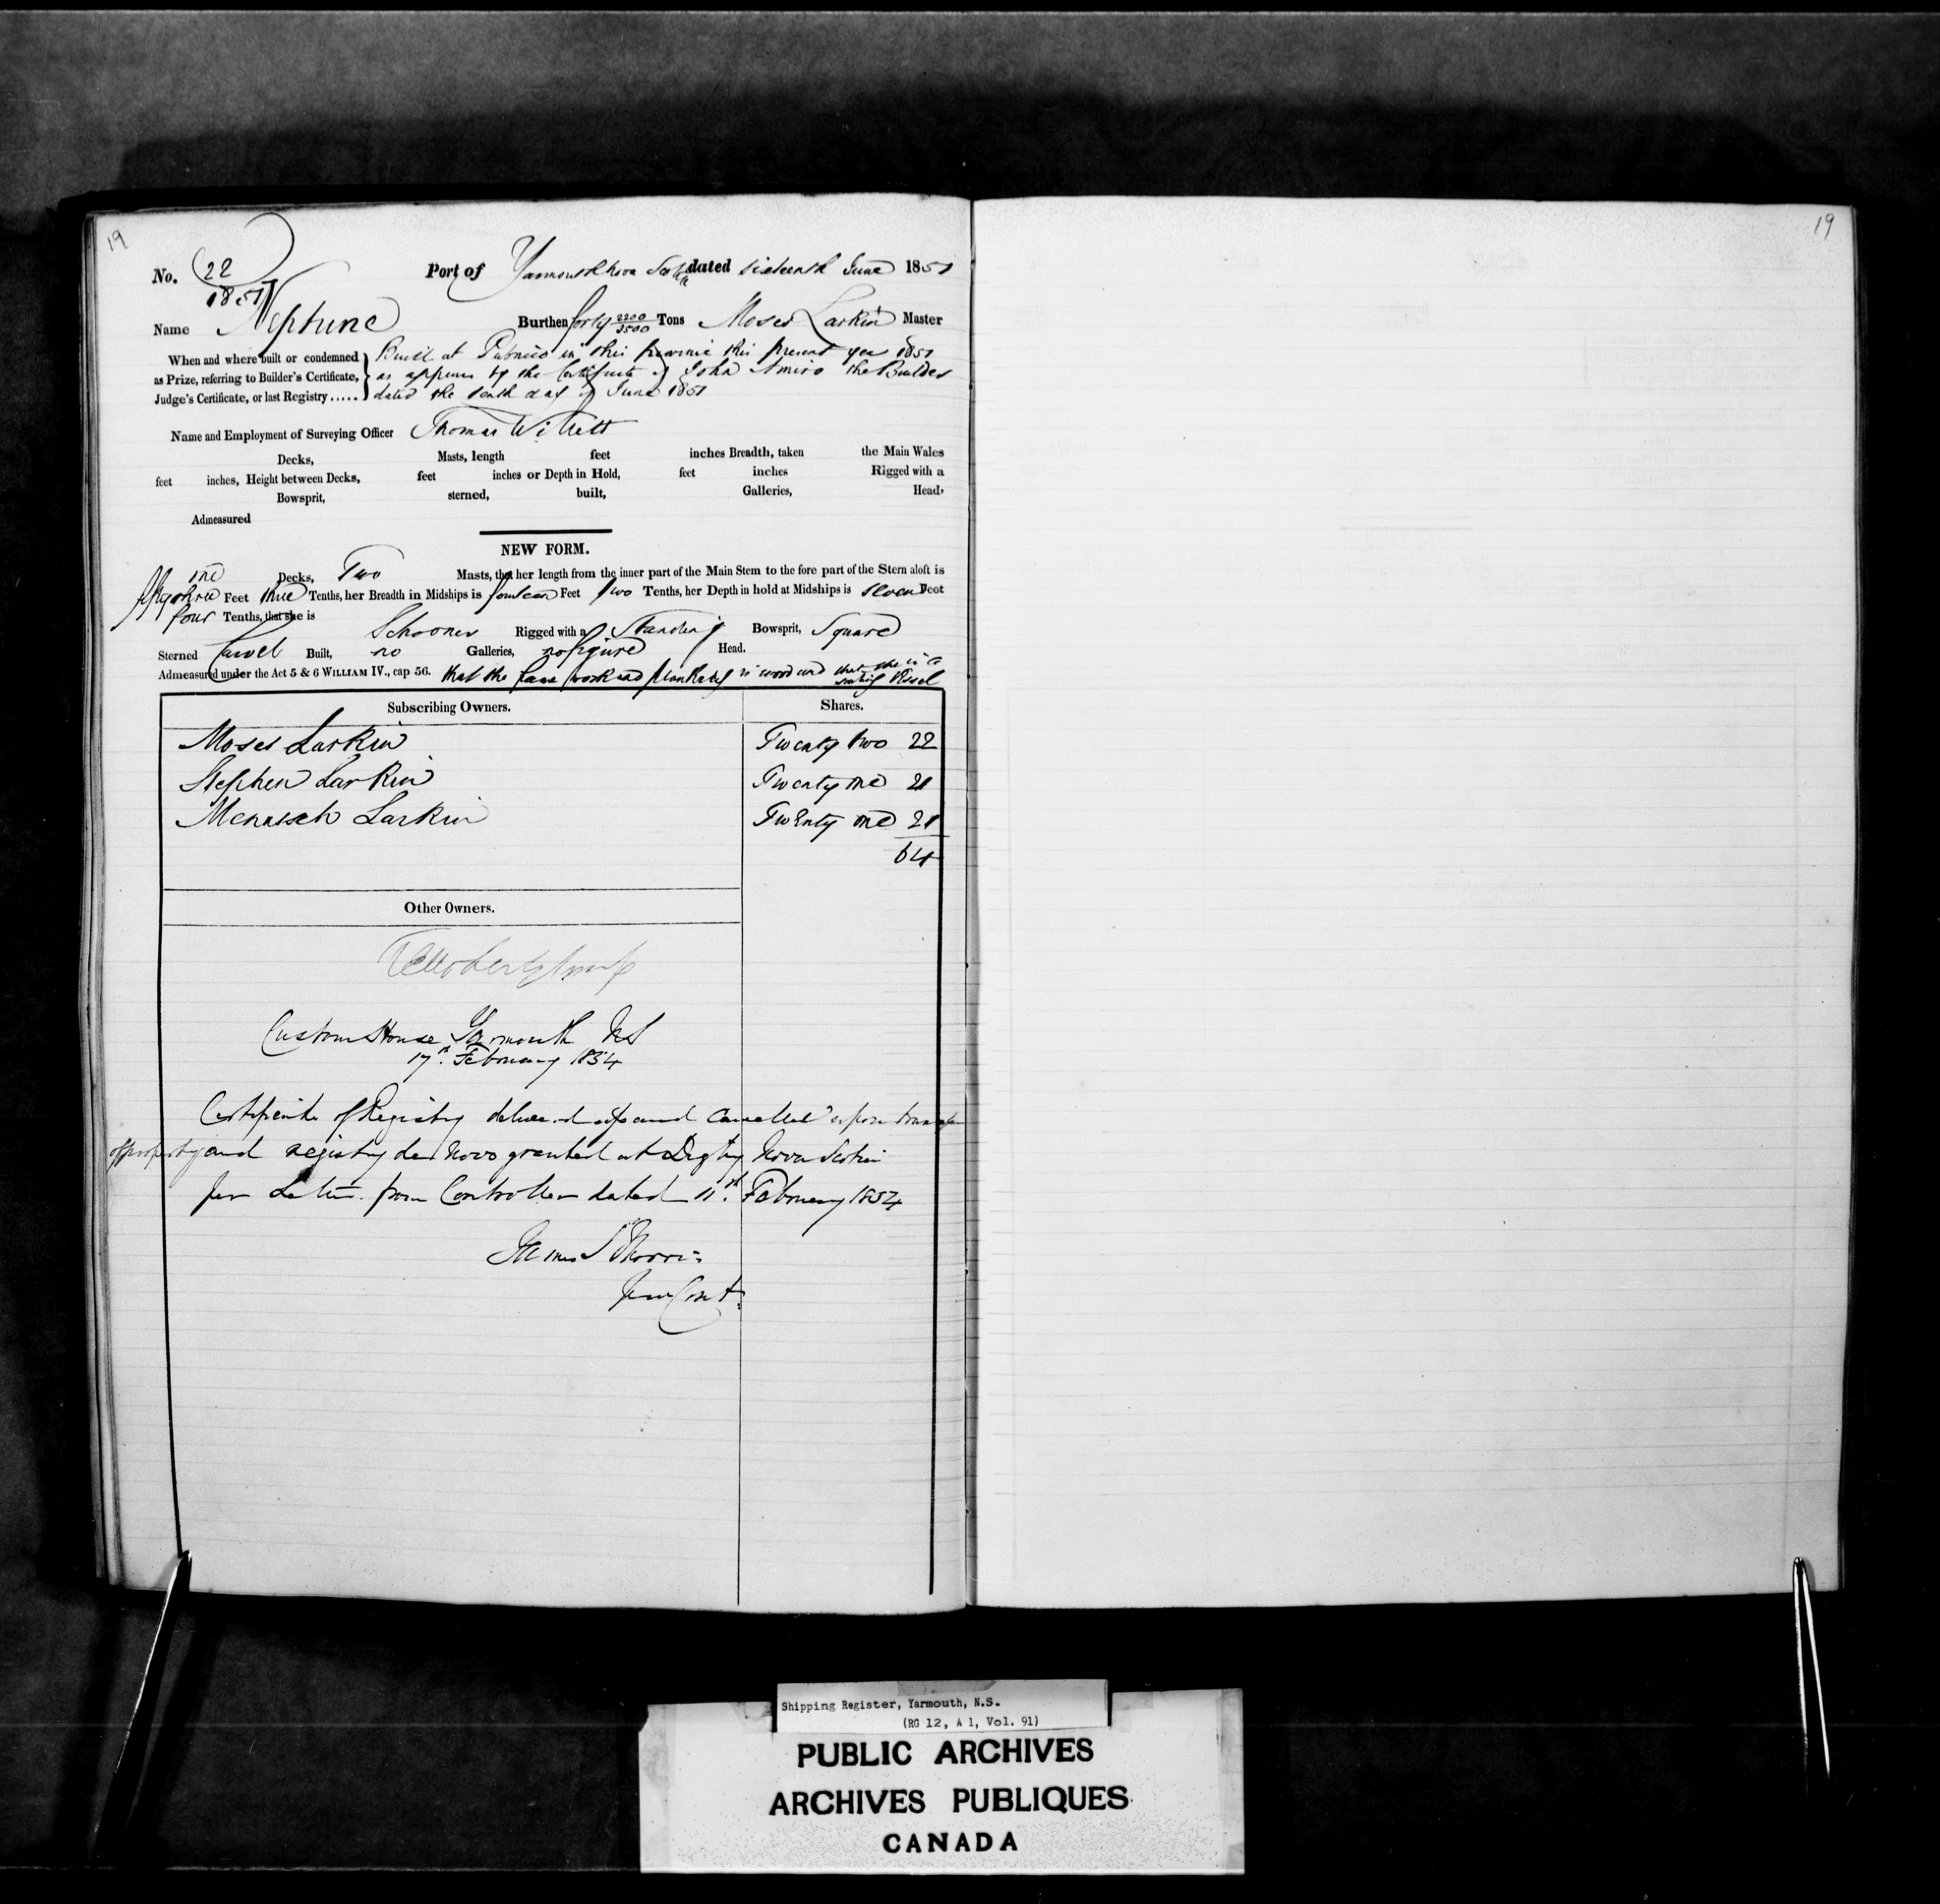 19
19
No. 22 Port of Yarmouth Nova Scotia dated sixteenth June 1851
1851
Name Neptune Burthen forty 2200/3500 Tons Moses Larkin Master
When and where built or condemned Built at Pubnico in this province this present year 1851
as Prize, referring to Builder's Certificate, as appears by the Certificate of John Amiro the Builder
Judge's Certificate, or last Registry ..... dated the tenth day of June 1851
Name and Employment of Surveying Officer Thomas Willett
Decks, Masts, length feet inches Breadth, taken the Main Wales
feet inches, Height between Decks, feet inches or Depth in Hold, feet inches Rigged with a
Bowsprit, sterned, built, Galleries, Head,
Admeasured
NEW FORM.
one Decks, Two Masts, that her length from the inner part of the Main Stem to the fore part of the Stern aloft is
fifty three Feet three Tenths, her Breadth in Midships is fourteen Feet two Tenths, her Depth in hold at Midships is seven Feet
four Tenths, that she is
Schooner Rigged with a Standing Bowsprit, Square
Sterned Carvel Built, no Galleries, no figure Head.
Admeasured under the Act 5 & 6 WILLIAM IV., cap 56. that the frame work and planking is wood and that she is a
sailing Vessel
Subscribing Owners. Shares.
Moses Larkin Twenty two 22
Stephen Larkin Twenty one 21
Menasseh Larkin Twenty one 21
64
Other Owners.
Custom House Yarmouth NS
17th February 1854
Certificate of Registry delivered up and Cancelled upon transfer
of property and registry de Novo granted at Digby Nova Scotia
per Letter from Controller dated 11th February 1854
James S Morris
Cont.
Shipping Register, Yarmouth, N.S.
(RG 12, A 1, Vol. 91)
PUBLIC ARCHIVES
ARCHIVES PUBLIQUES
CANADA